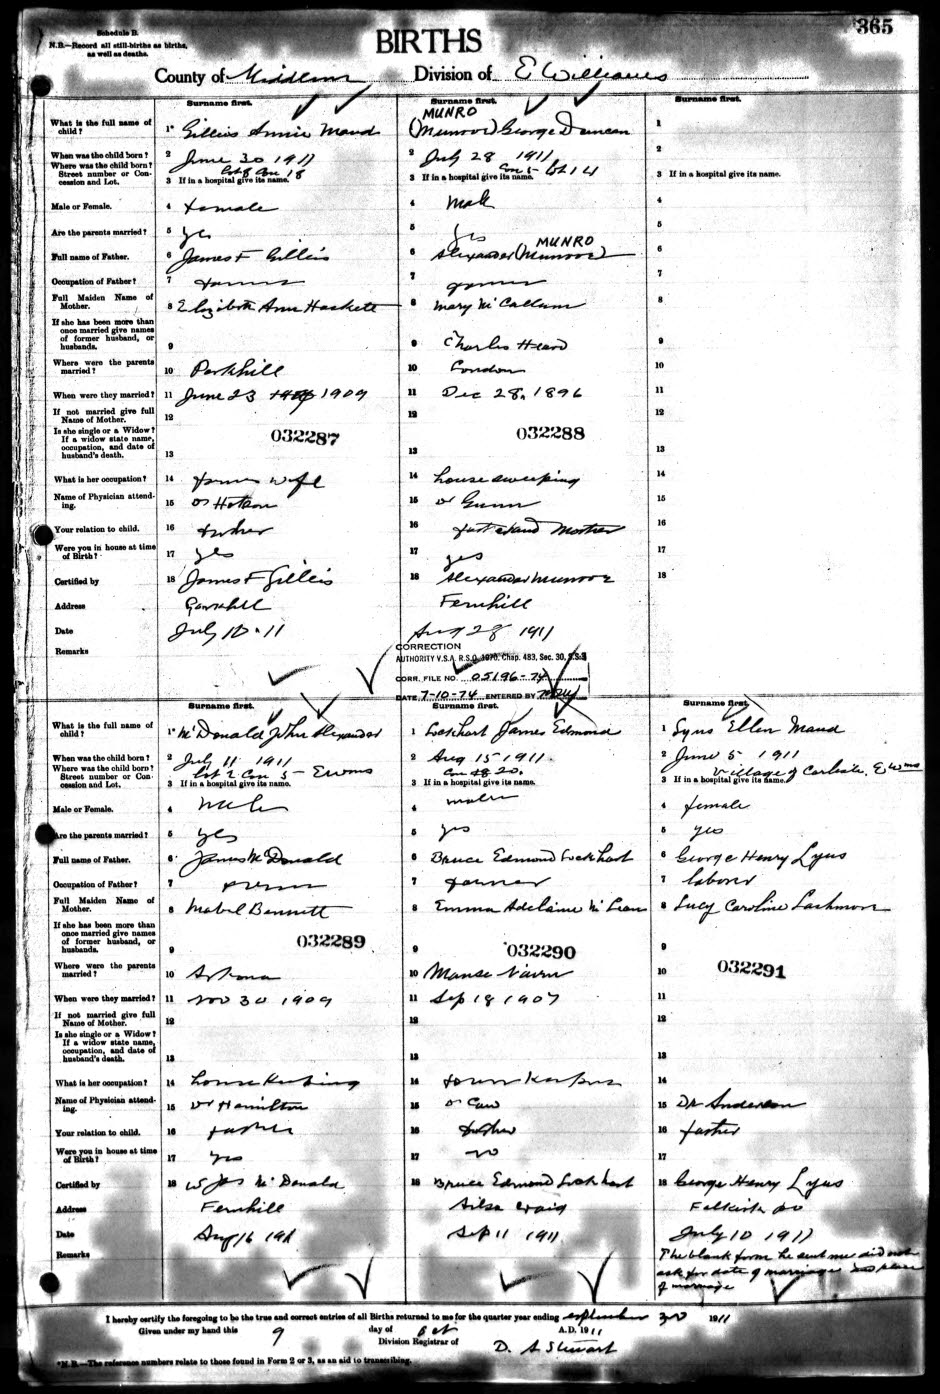 365
Schedule B.
N.B.—Record all still-births as births, as well as deaths.
BIRTHS
County of Middlesex Division of E Williams
Surname first.
Surname first.
Surname first.
What is the full name of child?
1* Gillies Annie Maud
MUNRO
(Munroe) George Duncan
1
When was the child born?
2 June 30 1911
2 July 28 1911
2
Where was the child born? Street number or Concession and Lot.
Lot 8 Con 18
3 If in a hospital give its name.
Con 5 Lot 14
3 If in a hospital give its name.
3 If in a hospital give its name.
Male or Female.
4 female
4 Male
4
Are the parents married?
5 yes
5 yes
5
Full name of Father.
6 James F Gillis
MUNRO
6 Alexander (Munroe)
6
Occupation of Father?
7 farmer
7 farmer
7
Full Maiden Name of Mother.
8 Elizabeth Ann Haskett
8 Mary McCallum
8
If she has been more than once married give names of former husband, or husbands.
9
9 Charles Heard
9
Where were the parents married?
10 Parkhill
10 London
10
When were they married?
11 June 23 1909
11 Dec 28, 1896
11
If not married give full Name of Mother.
12
12
12
Is she single or a Widow? If a widow state name, occupation, and date of husband's death.
032287
032288
13
13
13
What is her occupation?
14 farmers wife
14 housekeeping
14
Name of Physician attending.
15 Dr Hotson
15 Dr Gunn
15
Your relation to child.
16 father
16 father and Mother
16
Were you in house at time of Birth?
17 yes
17 yes
17
Certified by
18 James F Gillis
18 Alexander Munroe
18
Address
Parkhill
Fernhill
Date
July 10 - 11
Aug 28 1911
Remarks
CORRECTION
AUTHORITY V.S.A. R.S.O. 1970, Chap. 483, Sec. 30, S.S.
CORR. FILE NO. 05196-74
DATE 7-10-74 ENTERED BY
Surname first.
Surname first.
Surname first.
What is the full name of child?
1* McDonald John Alexander
1 Lockhart James Edmond
1 Lyus Ellen Maud
When was the child born?
2 July 11 1911
2 Aug 15 1911.
2 June 5 1911
Where was the child born? Street number or Concession and Lot.
Lot 2 Con 5 - E Wms
3 If in a hospital give its name.
Con 20.
3 If in a hospital give its name.
Village of Carlisle, E Wms
3 If in a hospital give its name.
Male or Female.
4 Male
4 male
4 female
Are the parents married?
5 yes
5 yes
5 yes
Full name of Father.
6 James McDonald
6 Bruce Edmond Lockhart
6 George Henry Lyus
Occupation of Father?
7 farmer
7 farmer
7 laborer
Full Maiden Name of Mother.
8 Mabel Bennett
8 Emma Adelaine McLean
8 Lucy Caroline Lashmore
If she has been more than once married give names of former husband, or husbands.
032289
032290
032291
9
9
9
Where were the parents married?
10 Arkona
10 Manse Nairn
10
When were they married?
11 Nov 30 1909
11 Sep 18 1907
11
If not married give full Name of Mother.
12
12
12
Is she single or a Widow? If a widow state name, occupation, and date of husband's death.
13
13
13
What is her occupation?
14 housekeeping
14
14
Name of Physician attending.
15 Dr Hamilton
15 Dr Caw
15 Dr Anderson
Your relation to child.
16 father
16 father
16 father
Were you in house at time of Birth?
17 yes
17 no
17
Certified by
18 Jas McDonald
18 Bruce Edmond Lockhart
18 George Henry Lyus
Address
Fernhill
Ailsa Craig
Falkirk PO
Date
Aug 16 1911
Sep 11 1911
July 10 1911
Remarks
The blank form he sent me did not
ask for date of marriage or place
of marriage
I hereby certify the foregoing to be the true and correct entries of all Births returned to me for the quarter year ending September 30 1911
Given under my hand this 9 day of Oct A.D. 1911
Division Registrar of
D. A Stewart
*N.B.—The reference numbers relate to those found in Form 2 or 3, as an aid to transcribing.